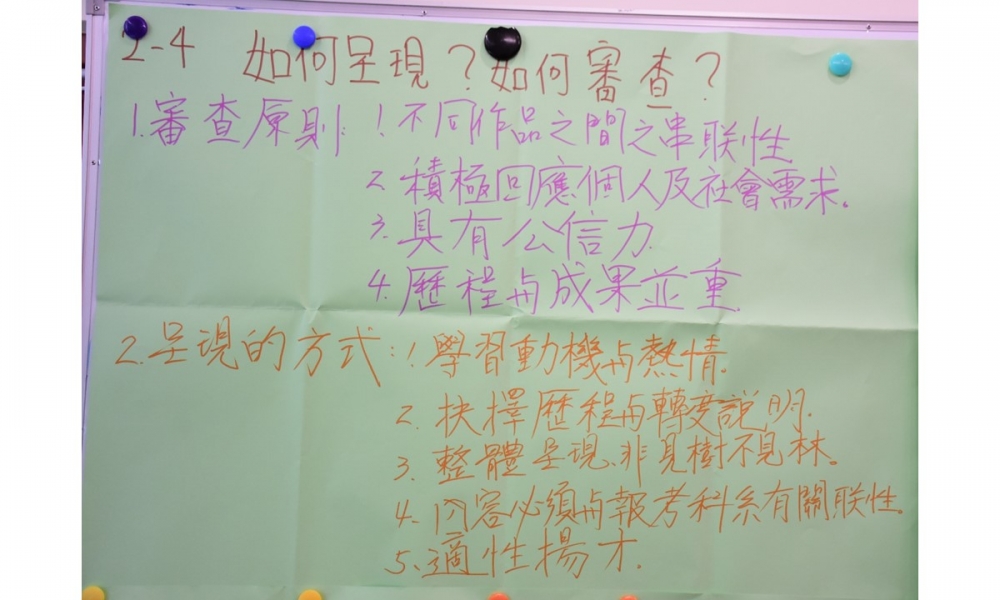 2-4 如何呈現？如何審查？
1.審查原則: 1.不同作品之間之串联性
2.積極回應個人及社會需求。
3.具有公信力.
4.歷程与成果並重
2.呈現的方式:1.學習動機与熱情.
2.抉擇歷程与轉变說明.
3.整體呈現、非見樹不見林。
4.內容必須与報考科系有關联性.
5.適性揚才.